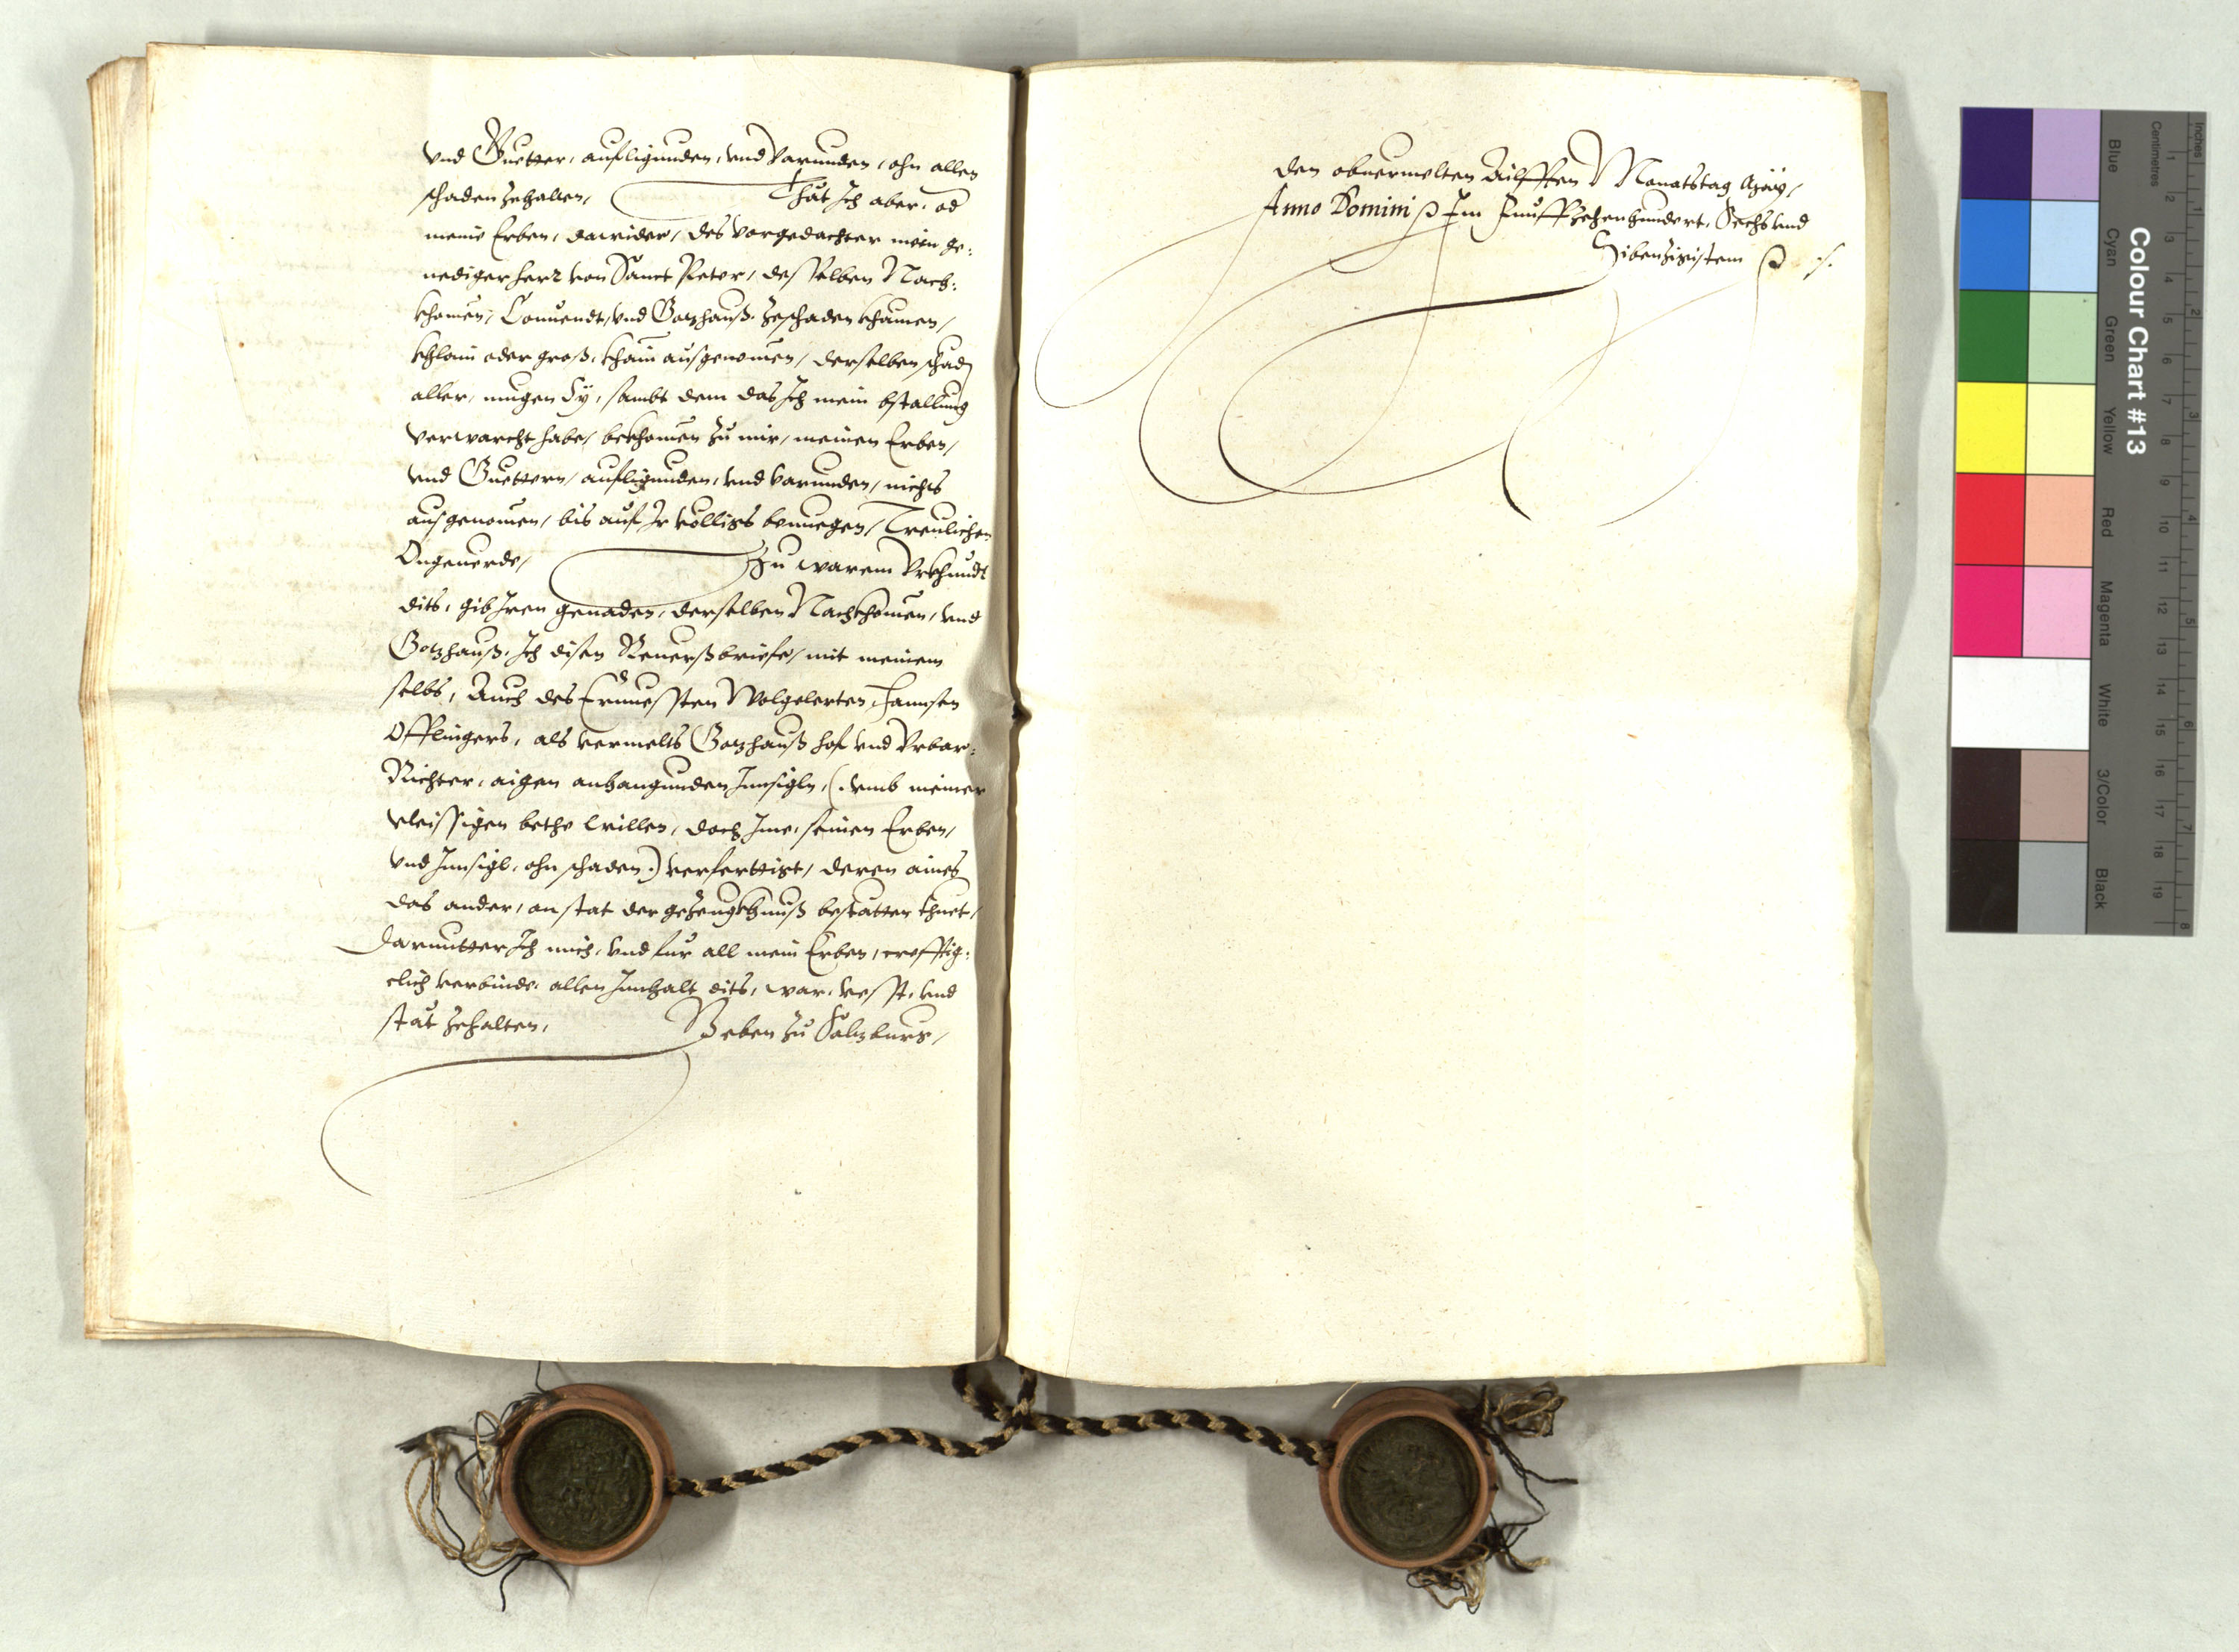 vnd Guetter, aufligunden, vnd varunden, ohn allen
schaden zehalten, Thät Ich aber, od
meine Erben, dawider, des vorgedachter mein ge:
nediger herr von Sanct Peter, desselben Nach:
khomen, Conuendt, vnd Gotzhauß, zeschaden khämen,
khlain oder groß, khain ausgenomen, derselben schad
aller, mugen Sy, sambt dem das Ich mein bstallung
verwarcht habe, bekhomen zu mir, meinen Erben,
vnd Guettern, aufligunden, vnd varunden, nichts
ausgenomen, bis auf Ir volligs benuegen, Treulichen
Ongeuerde, Zu warem Vrkhundt
dits, gib Iren genaden, derselben Nachkhomen, vnd
Gotzhauß, Ich disen Reuerßbriefe, mit meinem
selbs, Auch des Ernuessten Wolgelerten Hannsen
Offlingers, als vermelts Gotzhauß hof vnd Vrbar:
Richter, aigen anhangunden Innsigln, (vmb meiner
vleissigen bethe willen, doch Ime, seinen Erben,
vnd Innsigl, ohn schaden) verferttigt, deren aines
das ander, an stat der gezeugkhnuß bestätten thuet,
Darunter Ich mich, vnd für all mein Erben, crefftig:
clich verbinde, allen Innhalt dits, war, vesst, vnd
stät zehalten, Geben zu Saltzburg,
den obuermelten Ailfften Monatstag May,
Anno Domini Im Funffzehenhundert, Sechs vnd
Sibenzigistem
Colour Chart #13
Blue Cyan Green Yellow Red Magenta White 3/Color Black
Centimetres 1 2 3 4 5 6 7 8 9 10 11 12 13 14 15 16 17 18 19
Inches 1 2 3 4 5 6 7 8